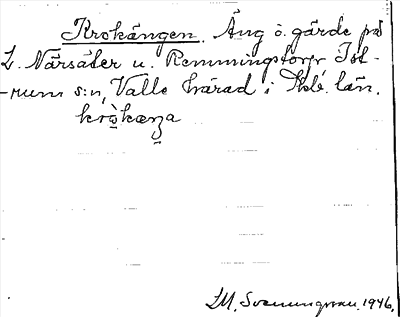 Krokängen. Äng o. gärde på
L. Närsäter u. Remmingstorp, Ist-
-rum s:n, Valle härad i Skb. län.
krò̤kæŋa
LM. Svenungsson. 1946.